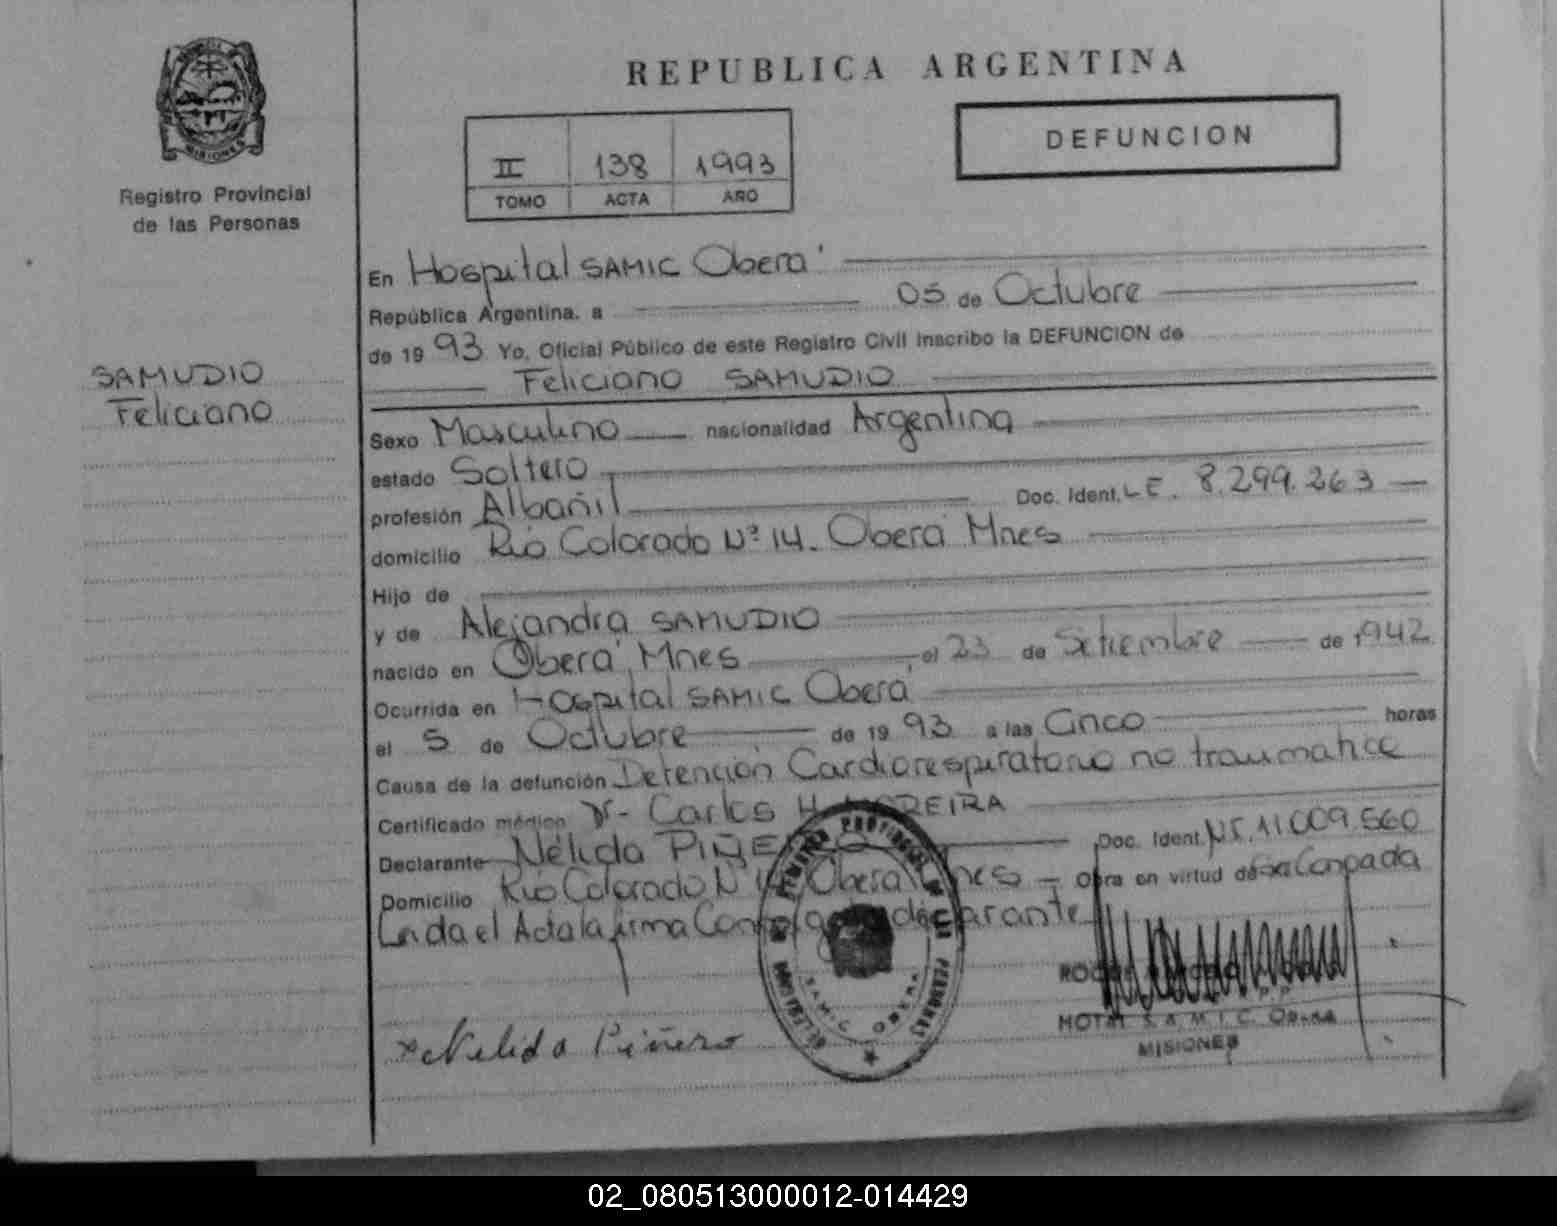 REPUBLICA ARGENTINA
MISIONES
Registro Provincial
de las Personas
II 138 1993
TOMO ACTA AÑO
DEFUNCION
SAMUDIO
Feliciano
En Hospital SAMIC Oberá
República Argentina, a 05 de Octubre
de 19 93 Yo, Oficial Público de este Registro Civil inscribo la DEFUNCION de
Feliciano SAMUDIO
Sexo Masculino nacionalidad Argentina
estado Soltero
profesión Albañil Doc. Ident. L.E. 8.299.263
domicilio Río Colorado Nº 14. Oberá Mnes
Hijo de
y de Alejandra SAMUDIO
nacido en Oberá, Mnes el 23 de Setiembre de 1942
Ocurrida en Hospital SAMIC Oberá
el 5 de Octubre de 19 93 a las Cinco horas
Causa de la defunción Detención Cardiorespiratorio no traumatica
Certificado médico Dr. Carlos H. MOREIRA
Declarante Nélida PIÑERO Doc. Ident. 11.009.560
Domicilio Río Colorado Nº 14 Oberá Mnes Obra en virtud de
el Acta la firma declarante
Nelida Piñero
S.A.M.I.C. OBERA
S.A.M.I.C. Obera
MISIONES
02_080513000012-014429